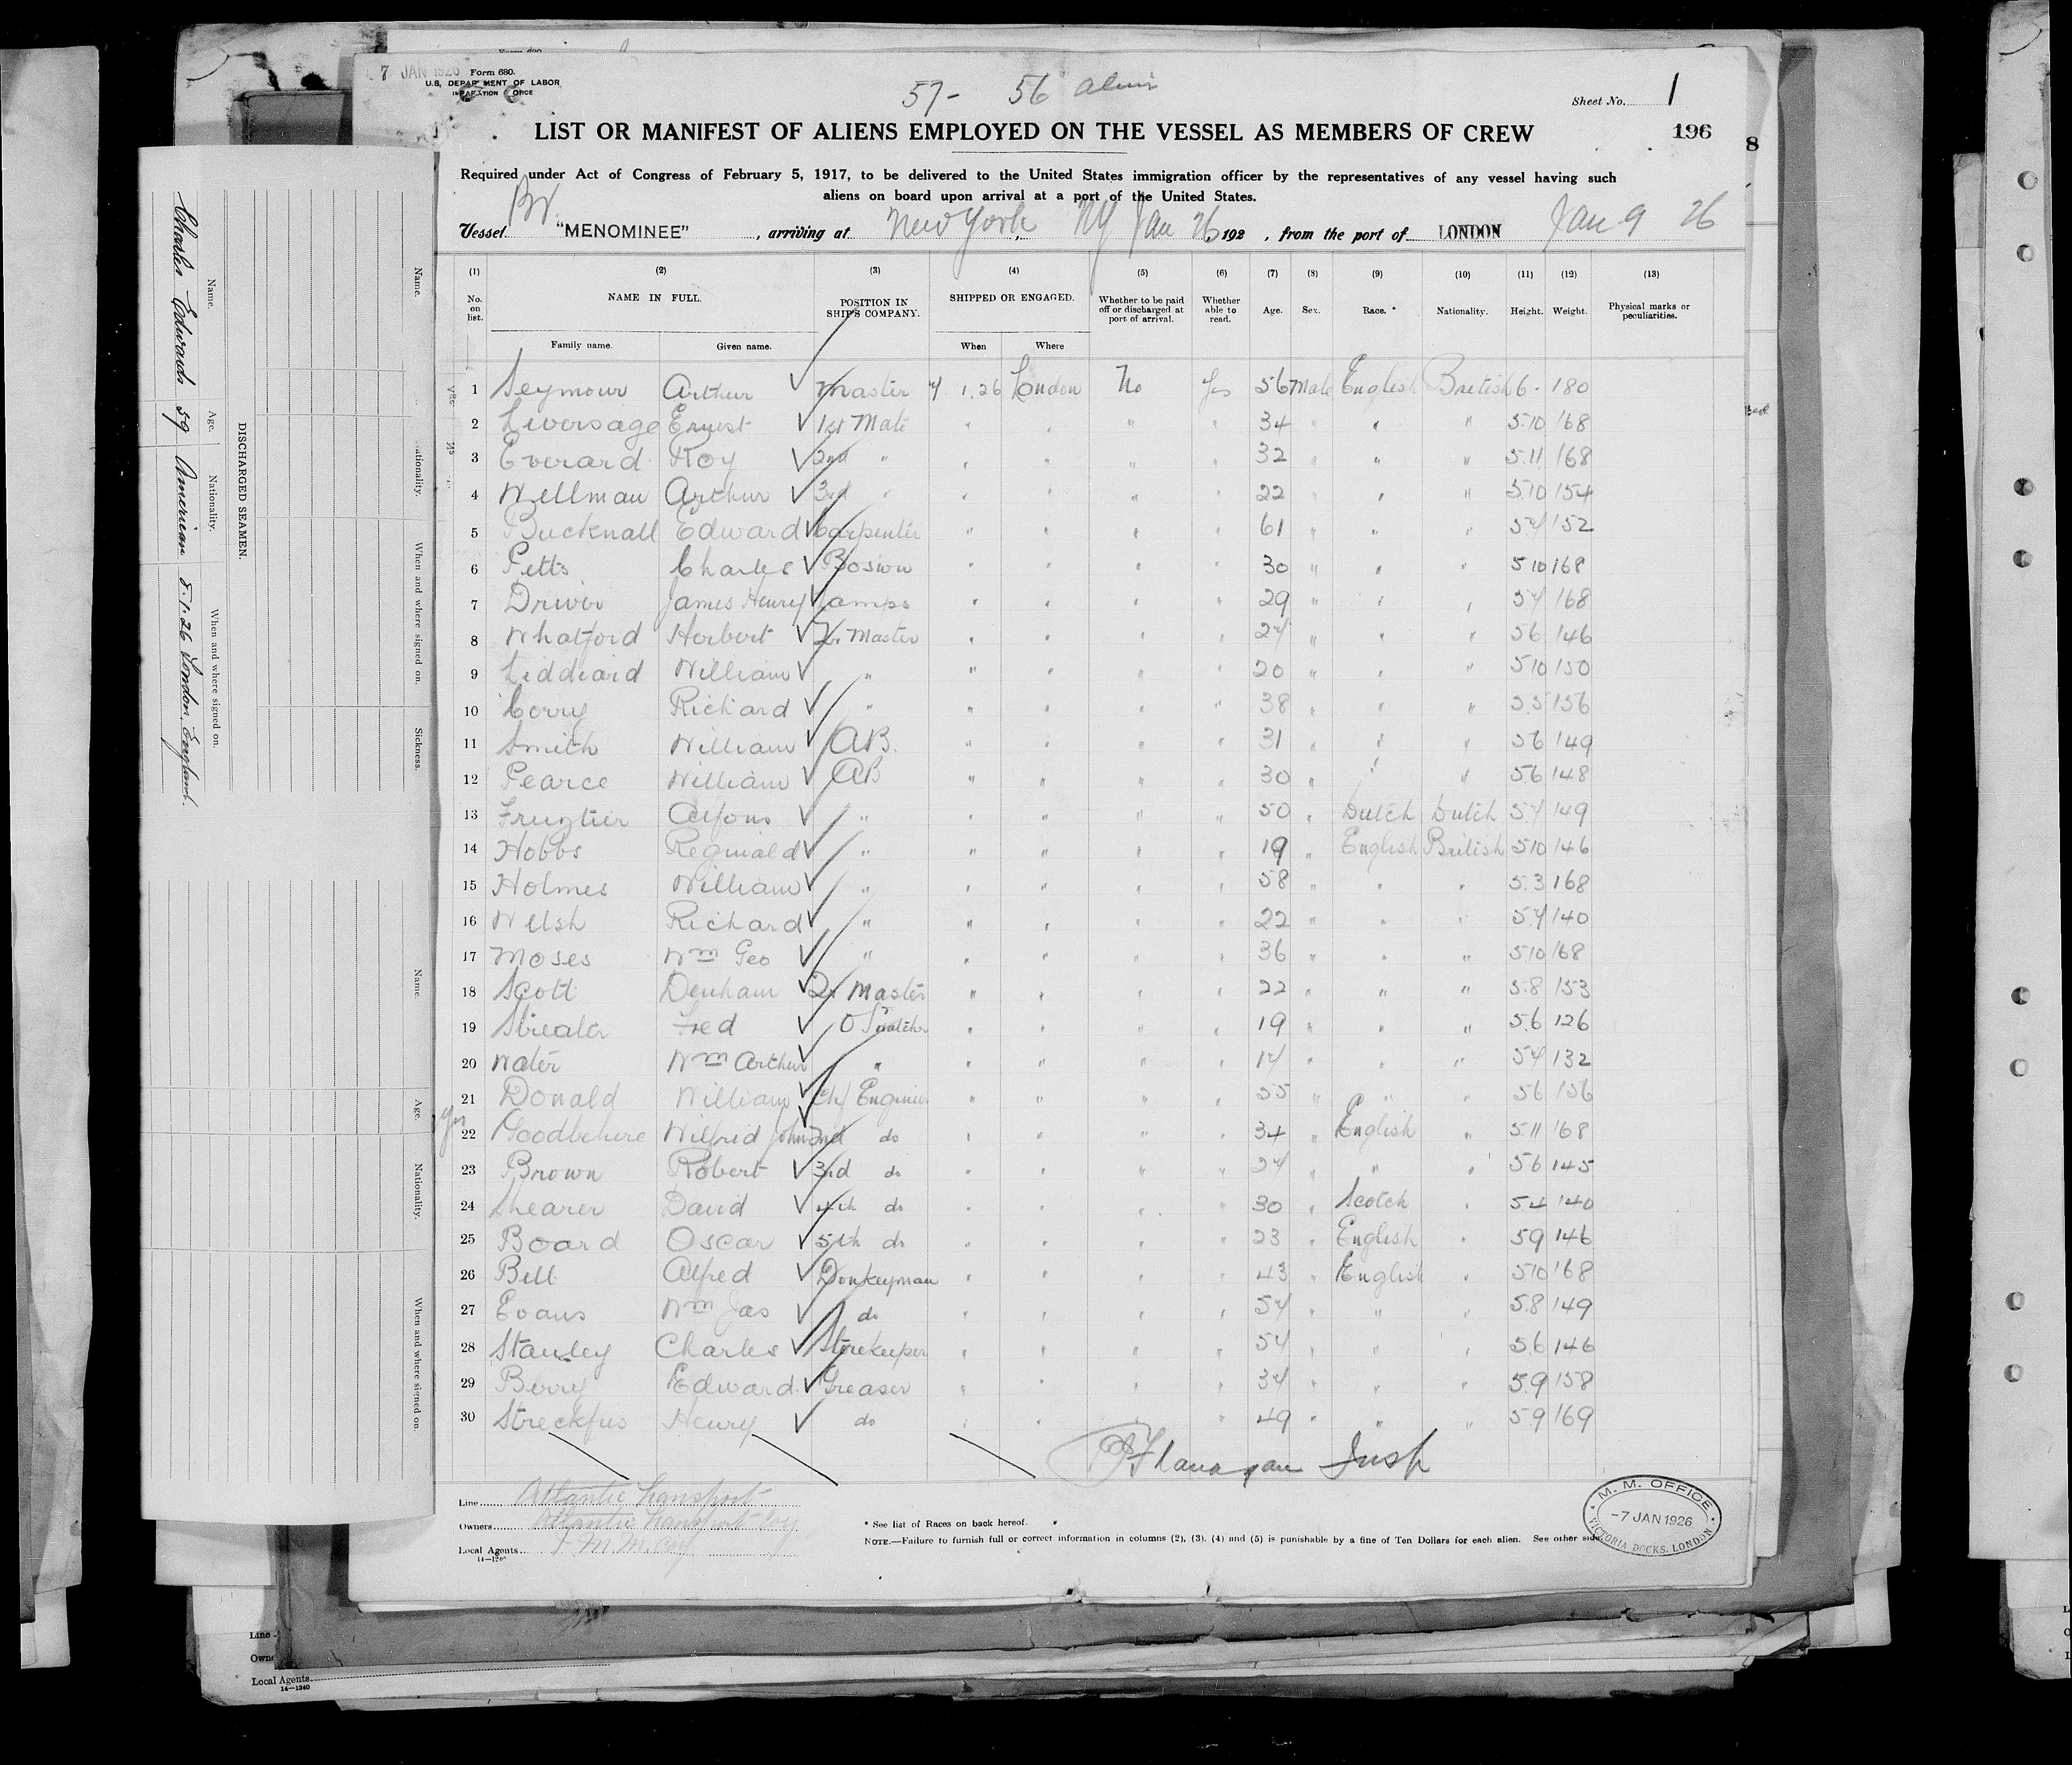 7 JAN 1926 Form 680.
U.S. DEPARTMENT OF LABOR
57- 56
Sheet No. 1
LIST OR MANIFEST OF ALIENS EMPLOYED ON THE VESSEL AS MEMBERS OF CREW
196
8
Required under Act of Congress of February 5, 1917, to be delivered to the United States immigration officer by the representatives of any vessel having such
aliens on board upon arrival at a port of the United States.
Br.
Vessel "MENOMINEE", arriving at New York, NY Jan 26, 192 , from the port of LONDON Jan 9 26
(1) (2) (3) (4) (5) (6) (7) (8) (9) (10) (11) (12) (13)
No. on list. NAME IN FULL. POSITION IN SHIP'S COMPANY. SHIPPED OR ENGAGED. Whether to be paid off or discharged at port of arrival. Whether able to read. Age. Sex. Race. * Nationality. Height. Weight. Physical marks or peculiarities.
Family name. Given name. When Where
1 Seymour Arthur Master 7 1.26 London No Yes 56 Male English British 6- 180
2 Liversage Ernest 1st Mate " " " " 34 " " " 5.10 168
3 Everard Roy 2nd " " " " " 32 " " " 5.11 168
4 Wellman Arthur 3rd " " " " " 22 " " " 5.10 154
5 Bucknall Edward Carpenter " " " " 61 " " " 5.7 152
6 Petts Charles Boswn " " " " 30 " " " 5 10 168
7 Driver James Henry Lamps " " " " 29 " " " 5.7 168
8 Whatford Herbert Q. Master " " " " 27 " " " 5 6 146
9 Liddiard William " " " " " 20 " " " 5 10 150
10 Corry Richard " " " " " 38 " " " 5.5 156
11 Smith William A.B. " " " " 31 " " " 5 6 149
12 Pearce William AB " " " " 30 " " " 5.6 148
13 Alfons " " " " " 50 " Dutch Dutch 5.7 149
14 Hobbs Reginald " " " " " 19 " English British 5 10 146
15 Holmes William " " " " " 58 " " " 5.3 168
16 Welsh Richard " " " " " 22 " " " 5.7 140
17 Moses Wm Geo " " " " " 36 " " " 5.10 168
18 Scott Denham Q. Master " " " " 22 " " " 5.8 153
19 Fred " " " " 19 " " " 5.6 126
20 Water Wm Arthur " " " " " 17 " " " 5.7 132
21 Donald William Chf Engineer " " " " 55 " " " 5 6 156
22 Goodbehere Wilfrid John 2nd do " " " " 34 " English " 5.11 168
23 Brown Robert 3rd do " " " " 37 " " " 5.6 145
24 Shearer David 4th do " " " " 30 " Scotch " 5.4 140
25 Board Oscar 5th do " " " " 23 " English " 5 9 146
26 Bell Alfred Donkeyman " " " " 43 " English " 5 10 168
27 Evans Wm Jas do " " " " 57 " " " 5.8 149
28 Stanley Charles Storekeeper " " " " 57 " " " 5.6 146
29 Berry Edward Greaser " " " " 37 " " " 5.9 158
30 Streckfus Henry do " " " " 49 " " " 5.9 169
Flanagan Insp
Line Atlantic Transport
Owners Atlantic Transport Coy
Local Agents
14—1240
* See list of Races on back hereof.
NOTE.—Failure to furnish full or correct information in columns (2), (3), (4) and (5) is punishable by a fine of Ten Dollars for each alien. See other side.
M. M. OFFICE
-7 JAN 1926
VICTORIA DOCKS, LONDON
DISCHARGED SEAMEN.
Name. Age. Nationality. When and where signed on.
Charles Edwards 59 American 8.1.26 London England.
Name. Nationality. When and where signed on. Sickness.
Name. Age. Nationality. When and where signed on
Line
Local Agents
14—1240